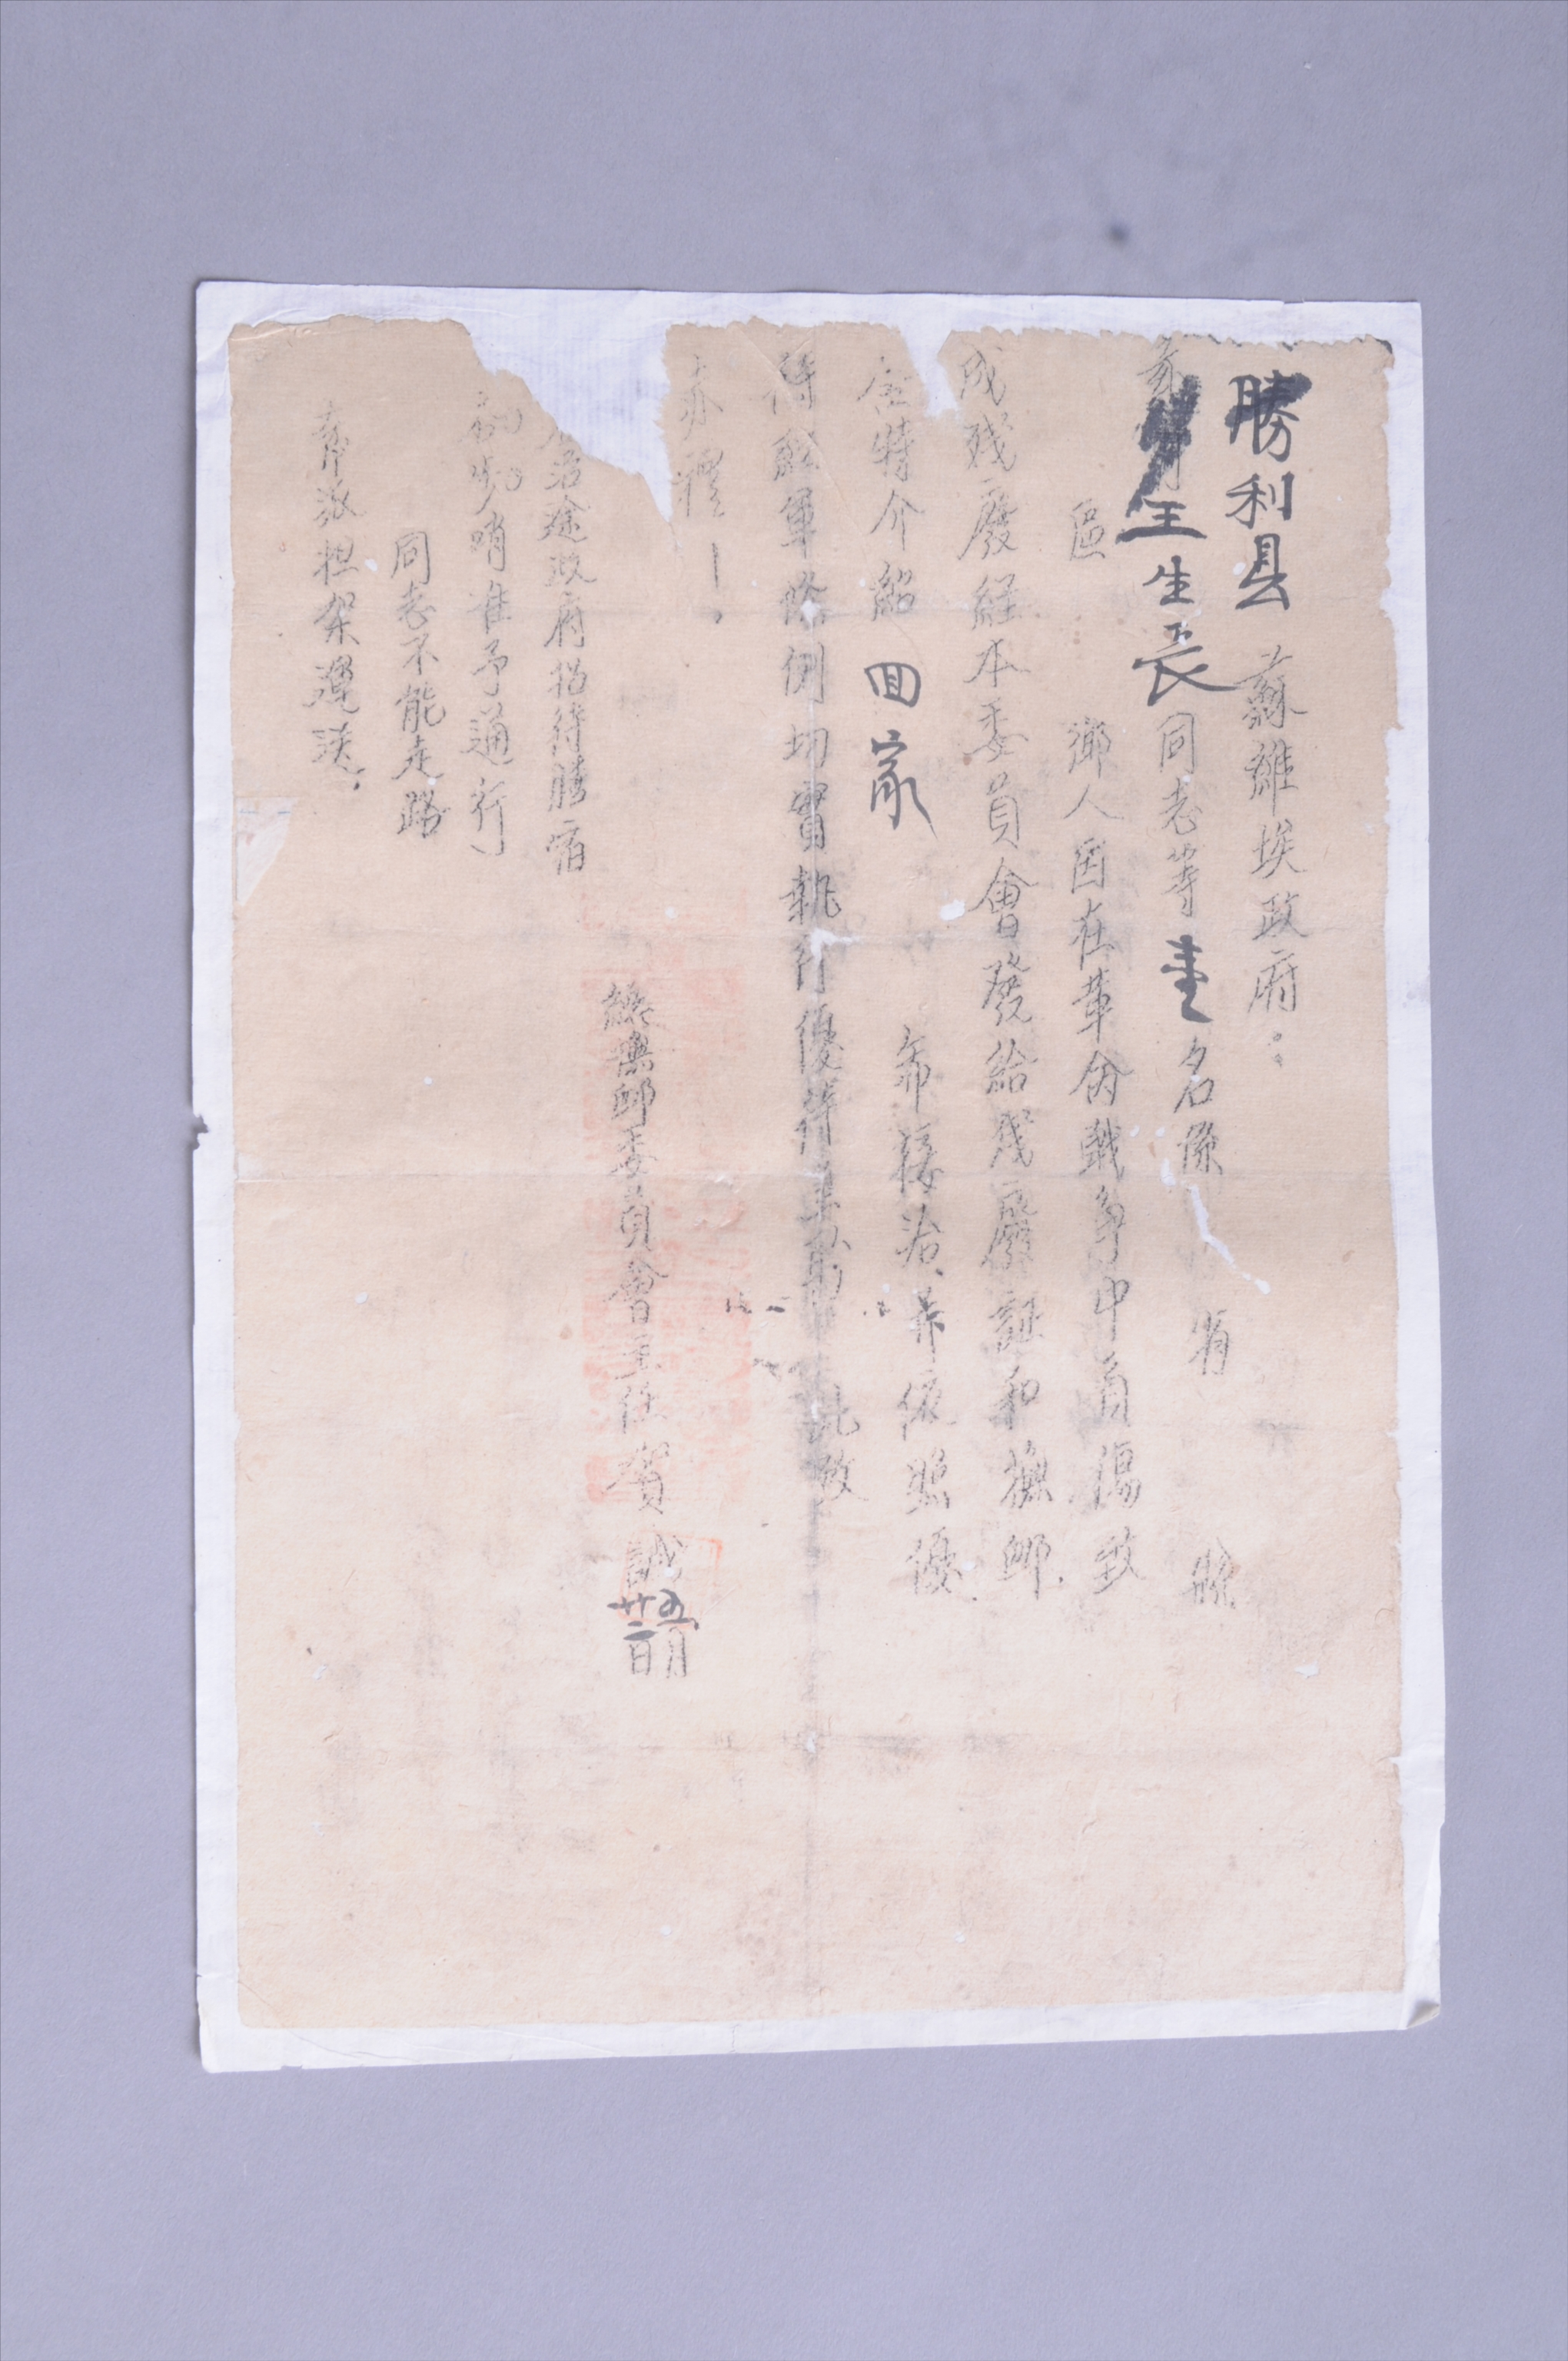 勝利县蘇維埃政府：
王生長同志等壹名係 省 縣
區 鄉人因在革命戰争中負傷致
成殘廢経本委員會發給殘廢証和撫卹
金特介紹回家 希接洽並依照優
待紅軍條例切實執行優待 此致
赤禮！
總撫卹委員會主任賀誠
五月
廿二日
沿途政府招待膳宿
步哨隹予通行
同志不能走路
希派担架運送